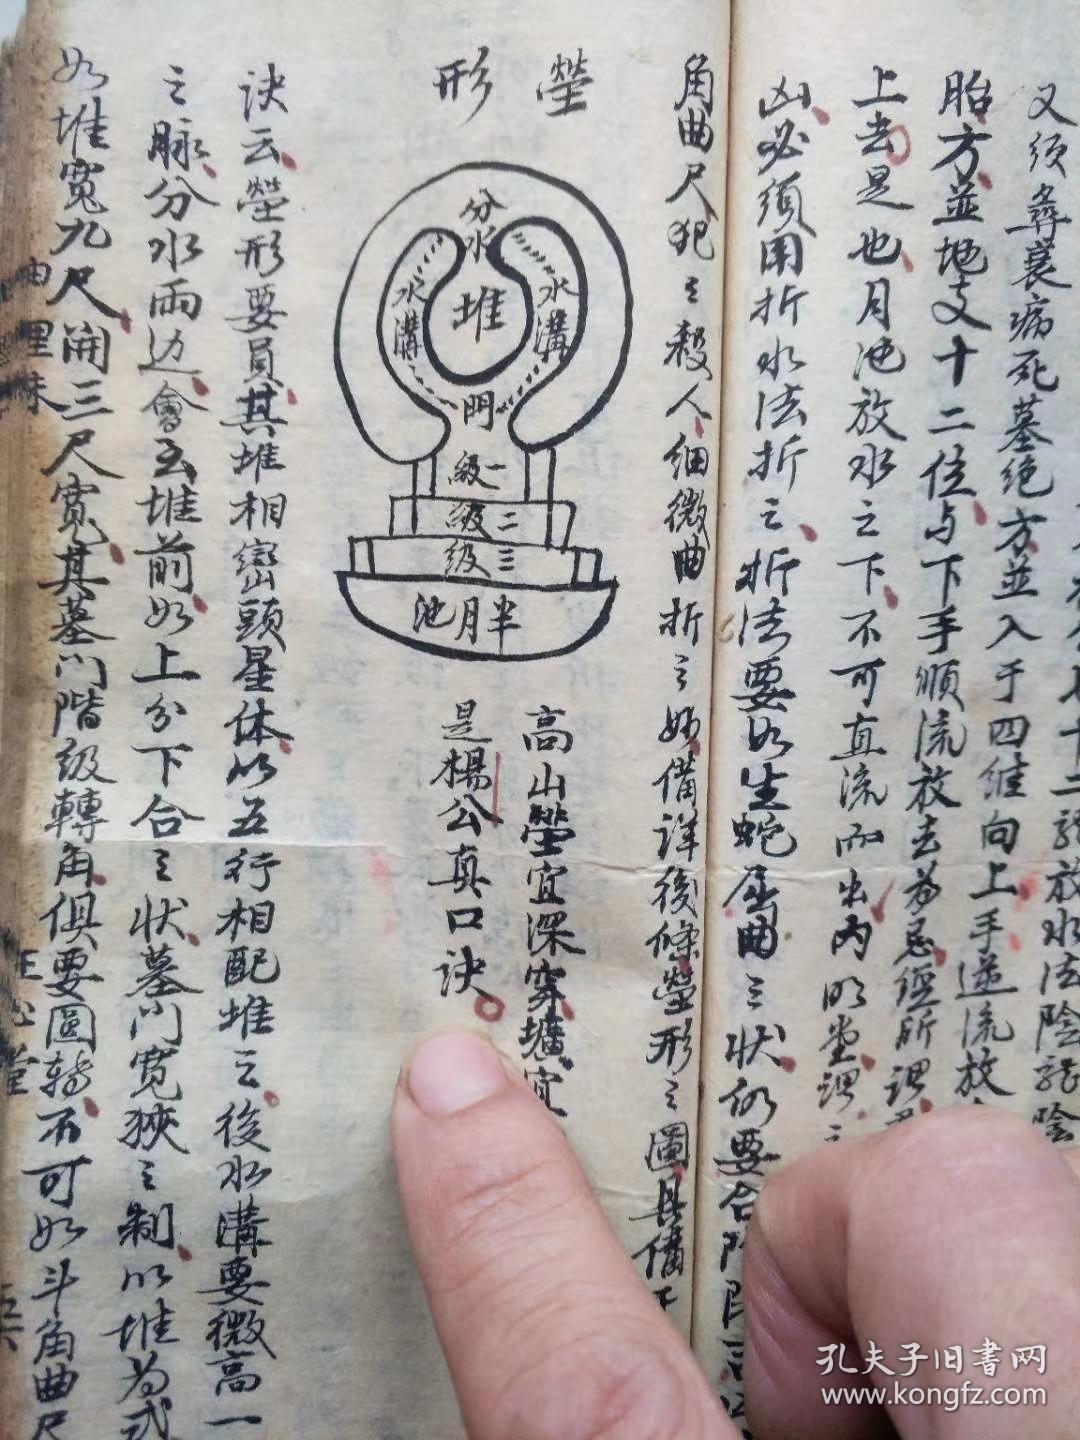 又須尋衰病死墓绝方並入于四维向上手逆流放
胎方並地支十二位与下手順流放去為忌經所谓
上去是也月池放水之下不可直流而出内明堂谓之
凶必須用折水法折之折法要如生蛇屈曲之状仍要合
角曲尺犯之殺人细微曲折之妙備详後條塋形之圖具備
塋形
分水
水溝
堆
水溝
門
一級
二級
三級
半月池
高山塋宜深穿壙宜
是楊公真口诀
诀云塋形要員其堆相巒頭星体以五行相配堆之後水溝要微高一
之脉分水兩边會玄堆前如上分下合之状墓门宽狹之制以堆为式
如堆寬九尺開三尺寬其墓门階級轉角俱要圓转不可如斗角曲尺
孔夫子旧書网
www.kongfz.com